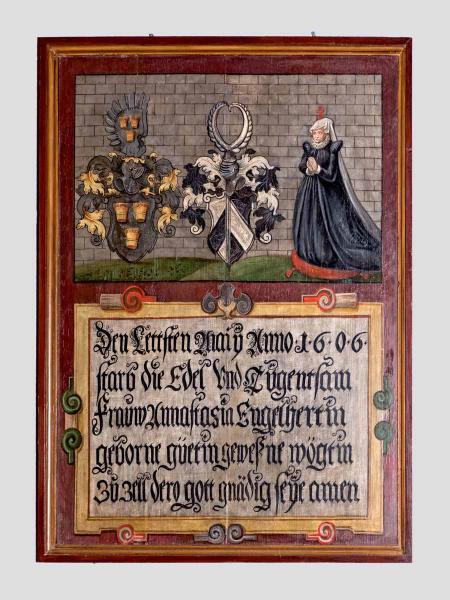 Den Lettsten Maÿ Anno 1·6·0·6·
starb die Edel Vnd Tugentsam
Frauw Annastasia Engelhertin
geborne güetin geweßne vögtin
Zů Zell dero gott gnädig seÿe amen